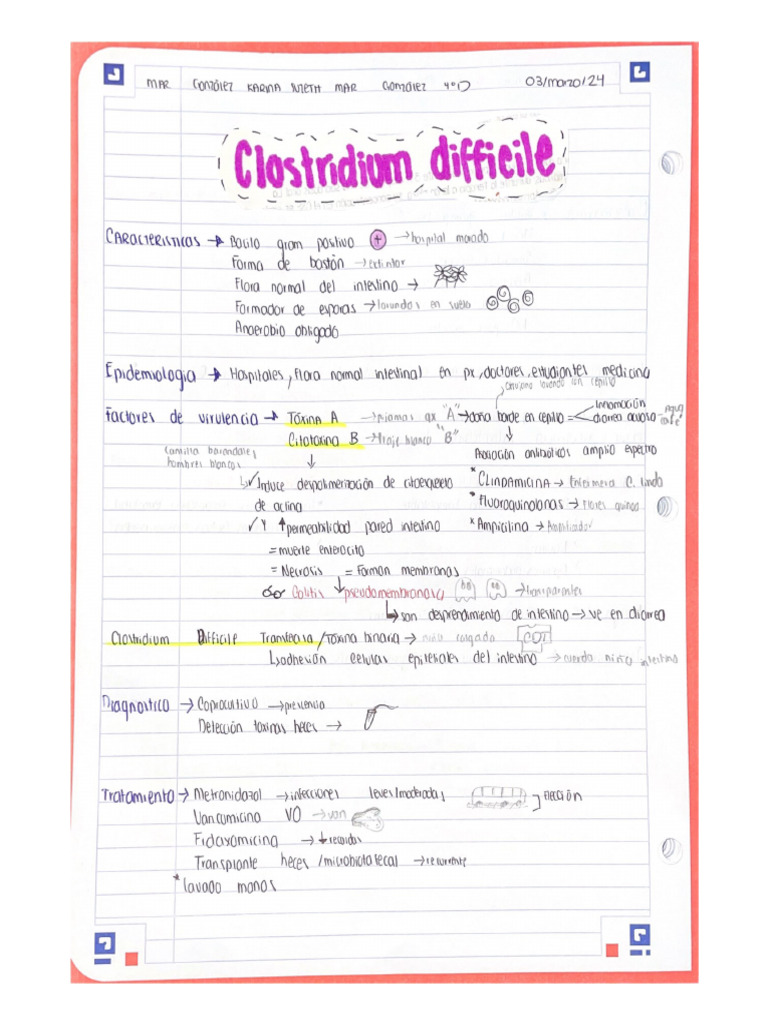 MAR González KARINA MAR González 4°D 03/marzo/24
Clostridium difficile
CARACTERISTICAS → Bacilo gram positivo + → hospital morado
Forma de bastón → extintor
Flora normal del intestino →
Formador de esporas → lavandos en suelo
Anaerobio obligado
Epidemiologia → Hospitales, Flora normal intestinal en px, doctores, estudiantes medicina
cirujano lavando con cepillo
Factores de virulencia → Toxina A → pijamas qx "A" → daña borde en cepillo = Inflamación
diarrea acuosa → Agua café
Citotoxina B → traje blanco "B"
Asociación antibióticos amplio espectro
Camilla barandales
hombres blancos
↳ ✓ Induce despolimerización de citoesqueleto
de actina
* CLINDAMICINA → Enfermera C. linda
✓ Y ↑ permeabilidad pared intestino
* Fluoroquinolonas → Flores quinco
= muerte enterocito
* Ampicilina → Amplificador
= Necrosis = Forman membranas
Colitis pseudomembranosa → transparentes
↳ son desprendimiento de intestino → ve en diarrea
Clostridium Difficile Transferasa / Toxina binaria → niño cargado CDT
↳ adhesión celulas epiteliales del intestino → cuerda niño intestino
Diagnostico → Coprocultivo → presencia
Detección toxinas heces →
Tratamiento → Metronidazol → infecciones leves/moderadas
Elección
Vancomicina VO → van
Fidaxomicina → ↓ recaidas
Transplante heces / microbiota fecal → recurrente
* lavado manos